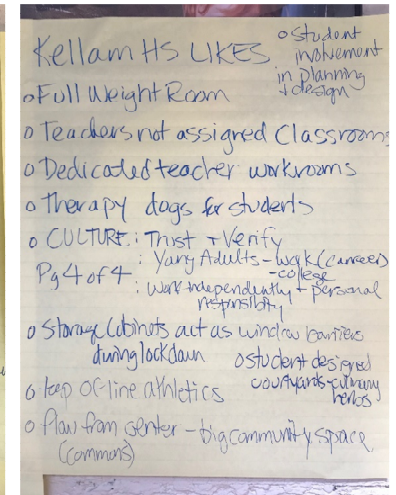 Kellam HS LIKES
o Student
involvement
in planning
+ design
o Full Weight Room
o Teachers not assigned Classrooms
o Dedicated teacher workrooms
o Therapy dogs for students
o CULTURE: : Trust + Verify
: Yang Adults - work (career)
- college
Pg 4 of 4
: Work independently + personal
responsibility
o Storage Cabinets act as window barriers
during lockdown
o student designed
courtyards - culinary
herbs
o top of-line athletics
o Flow from center - big community space
(commons)